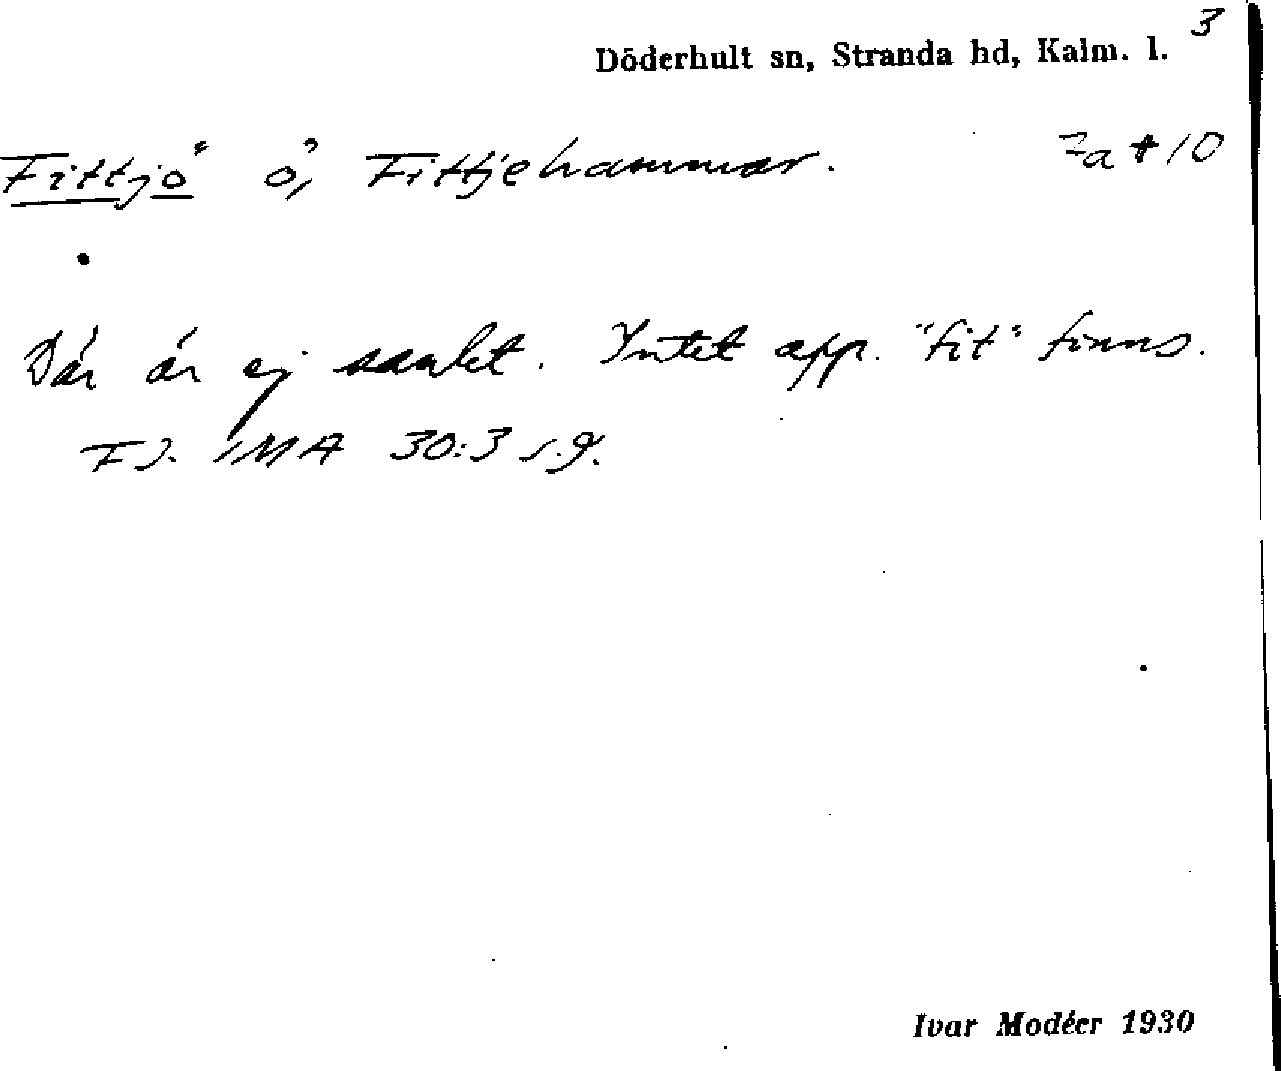 3
Döderhult sn, Stranda hd, Kalm. l.
Fittjö ö, Fittjehammar. 7a + 10
Där är ej sankt. Intet app. "fit" finns.
IMA 30:3 s.9.
Ivar Modéer 1930